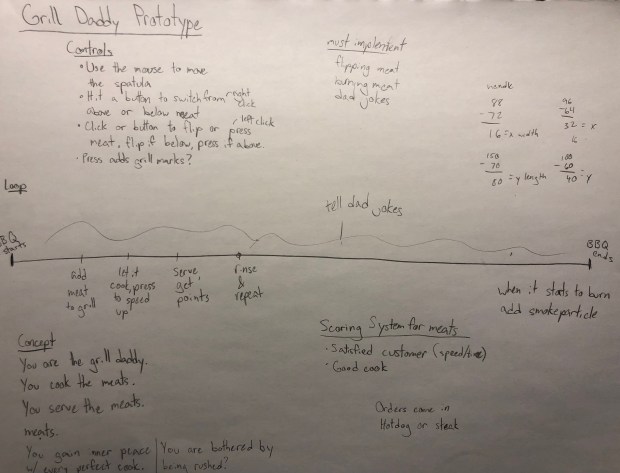 Grill Daddy Prototype
Controls
• Use the mouse to move
the spatula
• Hit a button to switch from right click
above or below meat
• Click or button to flip or press left click
meat, flip if below, press if above.
• Press adds grill marks?
must implement
flipping meat
burning meat
dad jokes
88
- 72
16 = x width
96
- 64
32 = x
16
150
- 70
80 = y length
100
- 60
40 = y
Loop
tell dad jokes
BBQ
starts
BBQ
ends
add
meat
to grill
let it
cook, press
to speed
up
serve,
get
points
rinse
&
repeat
when it stats to burn
add smoke particle
Concept
You are the grill daddy.
You cook the meats.
You serve the meats.
meats.
You gain inner peace
w/ every perfect cook.
You are bothered by
being rushed?
Scoring System for meats
· Satisfied customer (speed/time)
· Good cook
Orders come in
Hotdog or steak